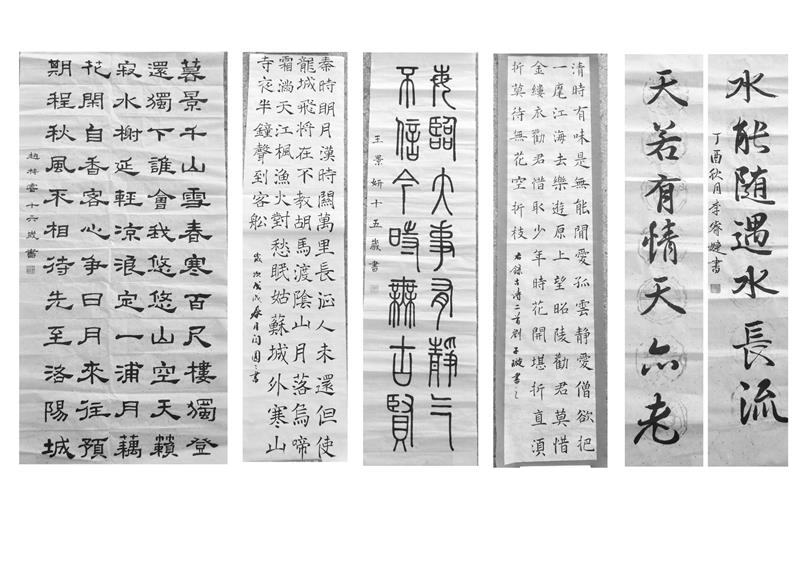 水能随遇水長流
丁酉秋月李睿婕書
天若有情天亦老
清時有味是無能閒愛孤雲靜愛僧欲把
一麾江海去樂遊原上望昭陵勸君莫惜
金縷衣勸君惜取少年時花開堪折直須
折莫待無花空折枝
右錄古詩二首劉子璇書之
每臨大事有靜气
不信今時無古賢
王景妍十五歲書
秦時明月漢時關萬里長征人未還但使
龍城飛將在不教胡馬渡陰山月落烏啼
霜滿天江楓漁火對愁眠姑蘇城外寒山
寺夜半鐘聲到客船
歲次戊戌春月
暮景千山雪春寒百尺樓獨登
還獨下誰會我悠悠山空天籟
寂水榭延輕涼浪定一浦月藕
花開自香客心爭日月來往預
期程秋風不相待先至洛陽城
十六歲書